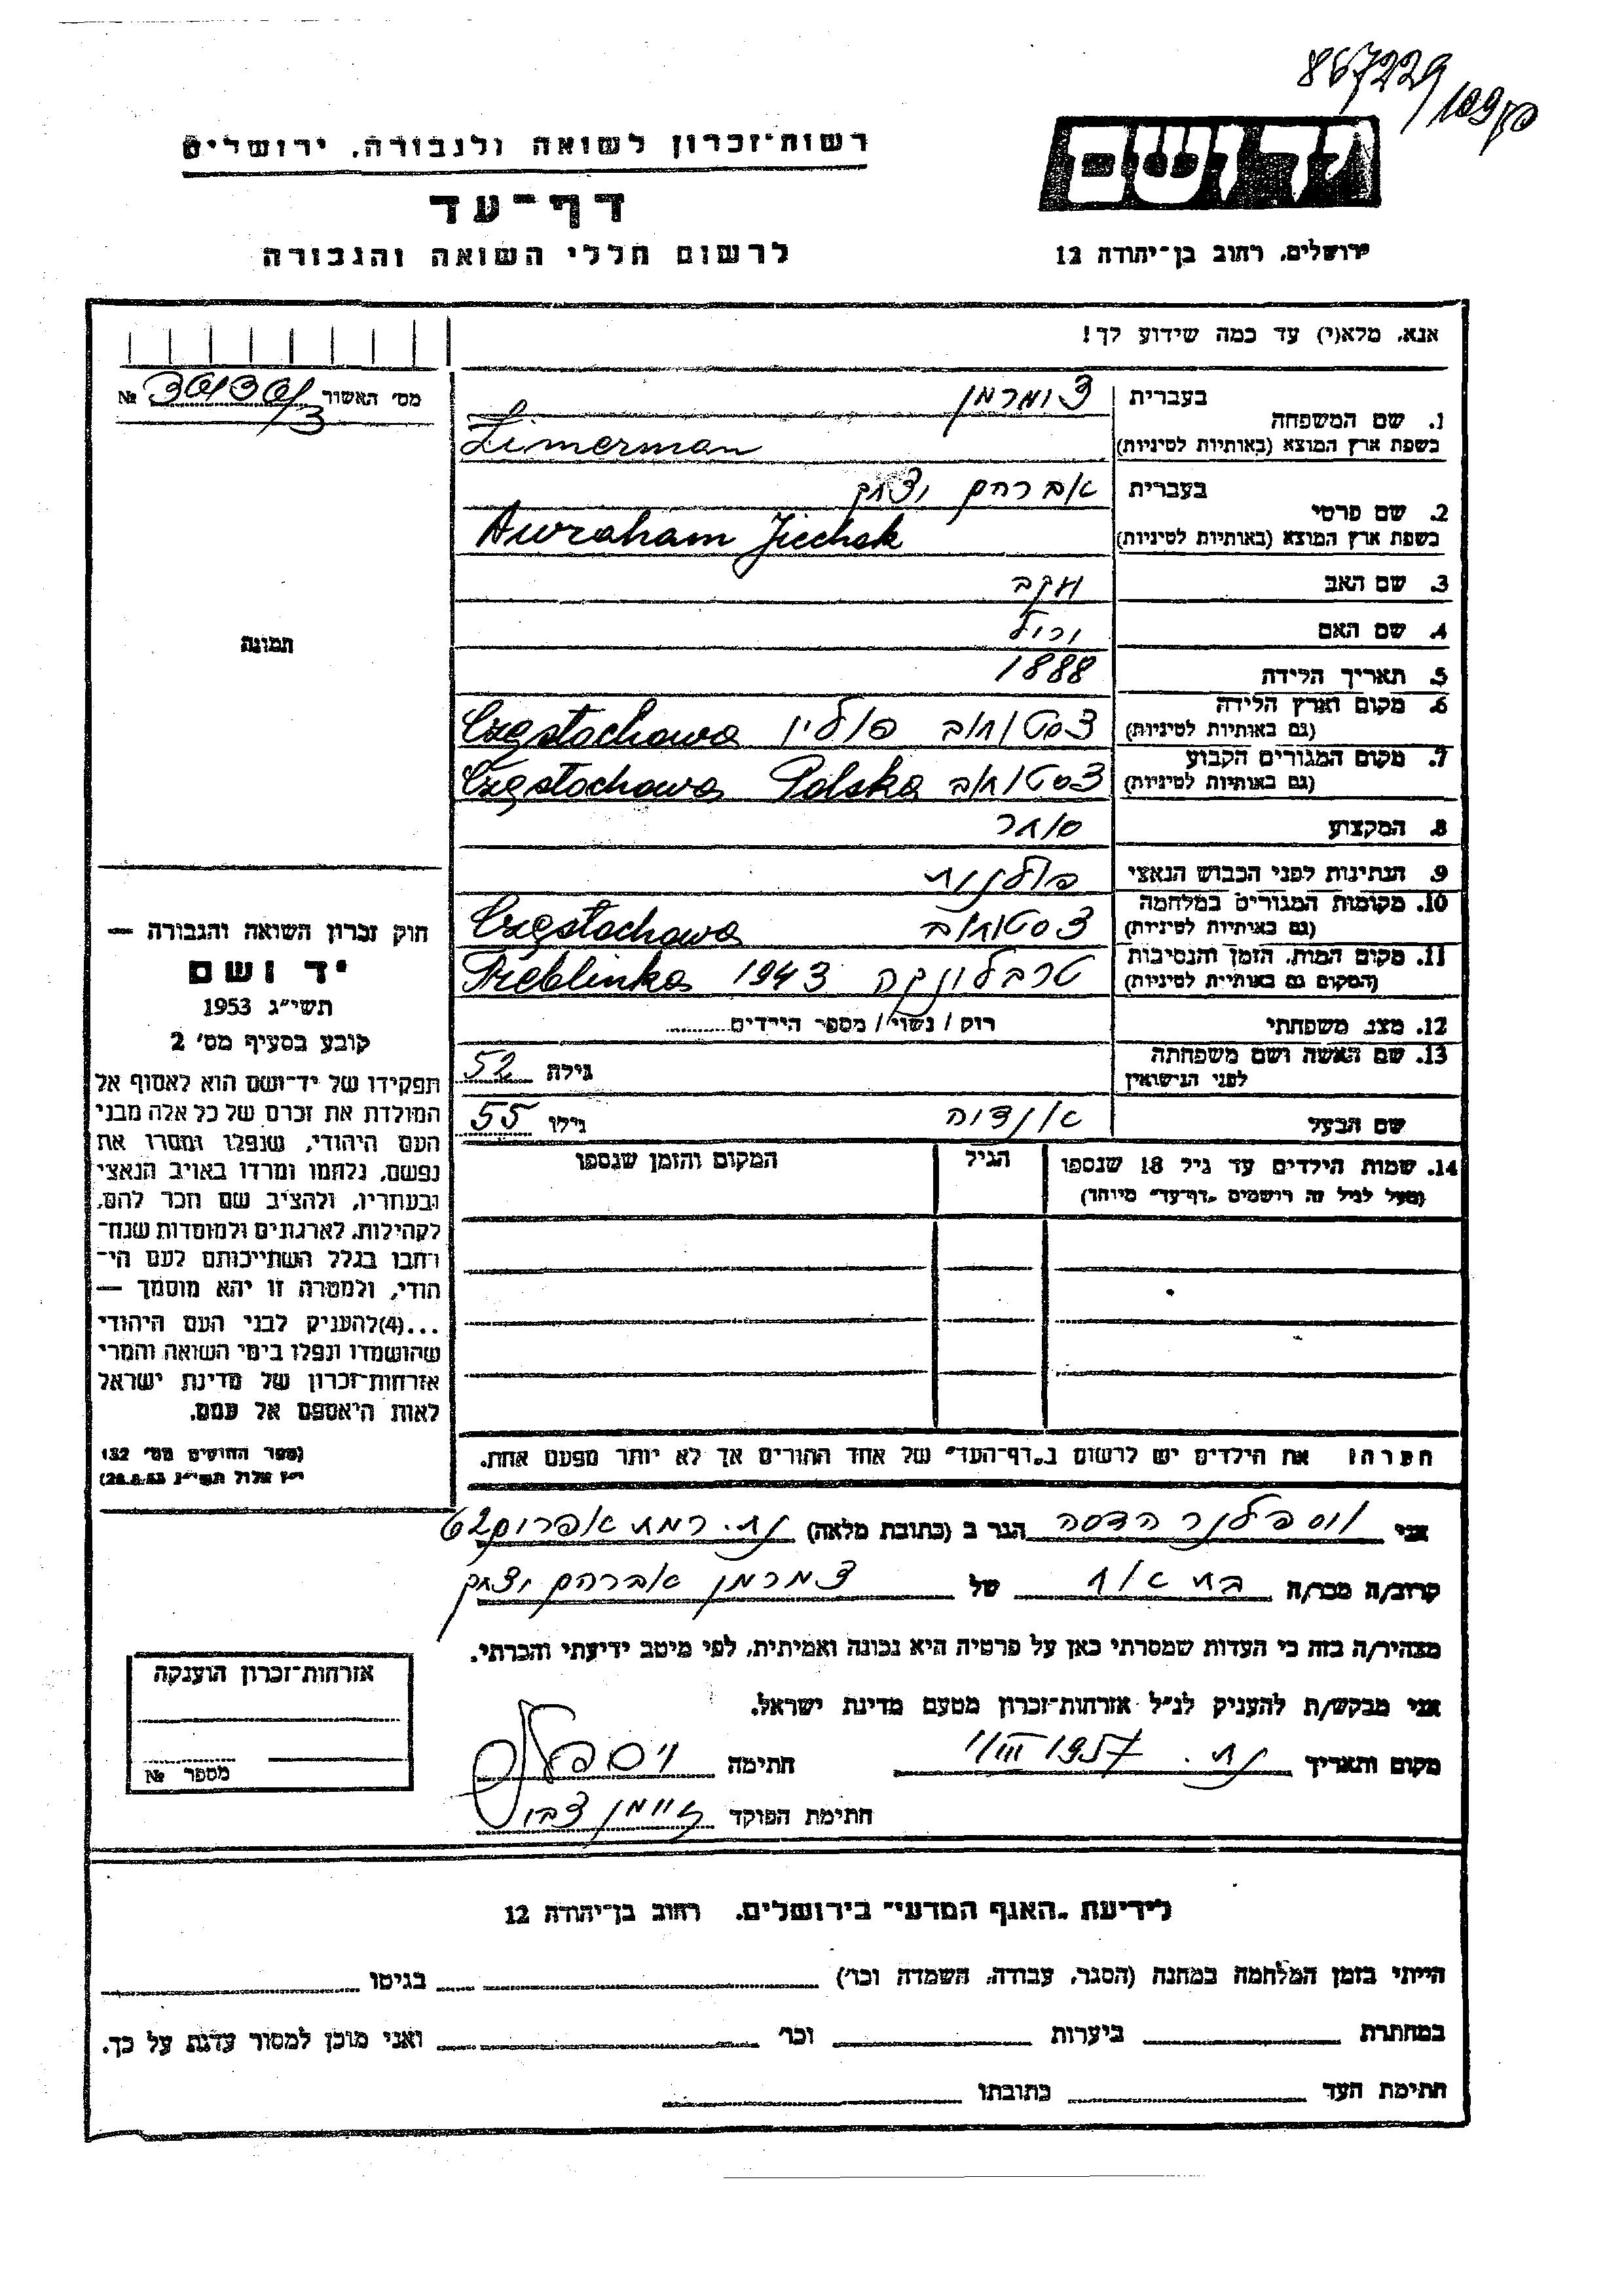 867229/109
רשות־זכרון לשואה ולגבורה, ירושלים
דף־עד
לרשום חללי השואה והגבורה
יד ושם
ירושלים, רחוב בן־יהודה 12
אנא, מלא(י) עד כמה שידוע לך!
מס׳ האשור 3 №
1. שם המשפחה
בעברית צימרמן
בשפת ארץ המוצא (באותיות לטיניות) Zimerman
2. שם פרטי
בעברית אברהם יצחק
בשפת ארץ המוצא (באותיות לטיניות) Awraham Jicchak
3. שם האב יעקב
4. שם האם
5. תאריך הלידה 1888
6. מקום וארץ הלידה (גם באותיות לטיניות) צנסטוחוב פולין Częstochowa
7. מקום המגורים הקבוע (גם באותיות לטיניות) צנסטוחוב Częstochowa Polska
8. המקצוע סוחר
9. הנתינות לפני הכבוש הנאצי פולנית
10. מקומות המגורים במלחמה (גם באותיות לטיניות) צנסטוחוב Częstochowa
11. מקום המות, הזמן והנסיבות (המקום גם באותיות לטיניות) טרבלינקה 1943 Treblinka
12. מצב משפחתי רווק / נשוי / מספר הילדים
13. שם האשה ושם משפחתה לפני הנישואין גילה 52
שם הבעל גילו 55
14. שמות הילדים עד גיל 18 שנספו (מעל לגיל זה רושמים "דף־עד" מיוחד)
הגיל
המקום והזמן שנספו
הערה: את הילדים יש לרשום ב"דף־העד" של אחד ההורים אך לא יותר מפעם אחת.
תמונה
חוק זכרון השואה והגבורה —
יד ושם
תשי״ג 1953
קובע בסעיף מס׳ 2
תפקידו של יד־ושם הוא לאסוף אל
המולדת את זכרם של כל אלה מבני
העם היהודי, שנפלו ומסרו את
נפשם, נלחמו ומרדו באויב הנאצי
ובעוזריו, ולהציב שם וזכר להם,
לקהילות, לארגונים ולמוסדות שנח־
רבו בגלל השתייכותם לעם הי־
הודי, ולמטרה זו יהא מוסמך —
...(4) להעניק לבני העם היהודי
שהושמדו ונפלו בימי השואה והמרי
אזרחות־זכרון של מדינת ישראל
לאות היאספם אל עמם.
(ספר החוקים מס׳ 132
י״ז אלול תשי״ג 28.8.53)
אני הדסה הגר ב (כתובת מלאה) נת. רמת אפרים 62
קרוב/ה מכר/ה בת אח של צמרמן אברהם יצחק
מצהיר/ה בזה כי העדות שמסרתי כאן על פרטיה היא נכונה ואמיתית, לפי מיטב ידיעתי והכרתי.
אני מבקש/ת להעניק לנ״ל אזרחות־זכרון מטעם מדינת ישראל.
מקום ותאריך נת. 1/III 1957 חתימה
חתימת הפוקד
אזרחות־זכרון הוענקה
מספר №
לידיעת "האגף המדעי" בירושלים, רחוב בן־יהודה 12
הייתי בזמן המלחמה במחנה (הסגר, עבודה, השמדה וכו׳) בגיטו
במחתרת ביערות וכו׳ ואני מוכן למסור עדות על כך.
חתימת העד כתובתו